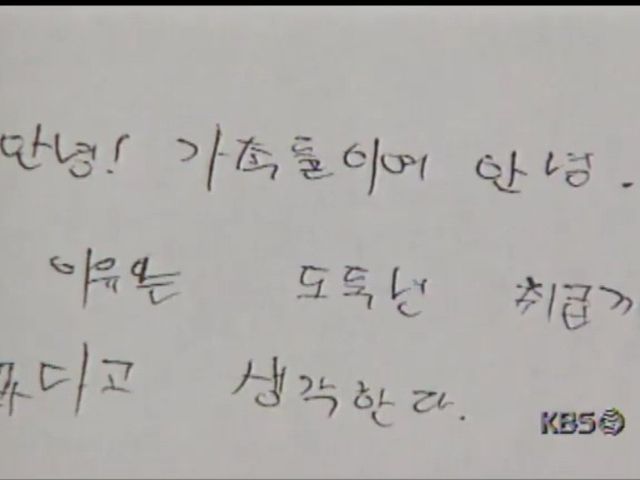 안녕! 가족들이여 안녕.
이유는 도둑년 취급
생각한다.
KBS